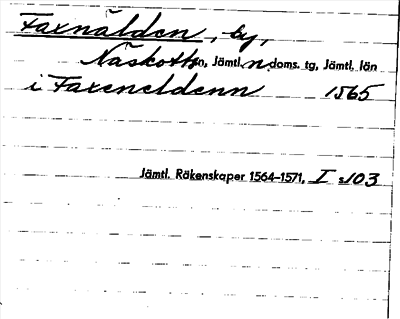 Faxnälden, by,
Näskotts sn, Jämtl. n. doms. tg, Jämtl. län
i Faxeneldenn 1565
Jämtl. Räkenskaper 1564–1571, I s. 103